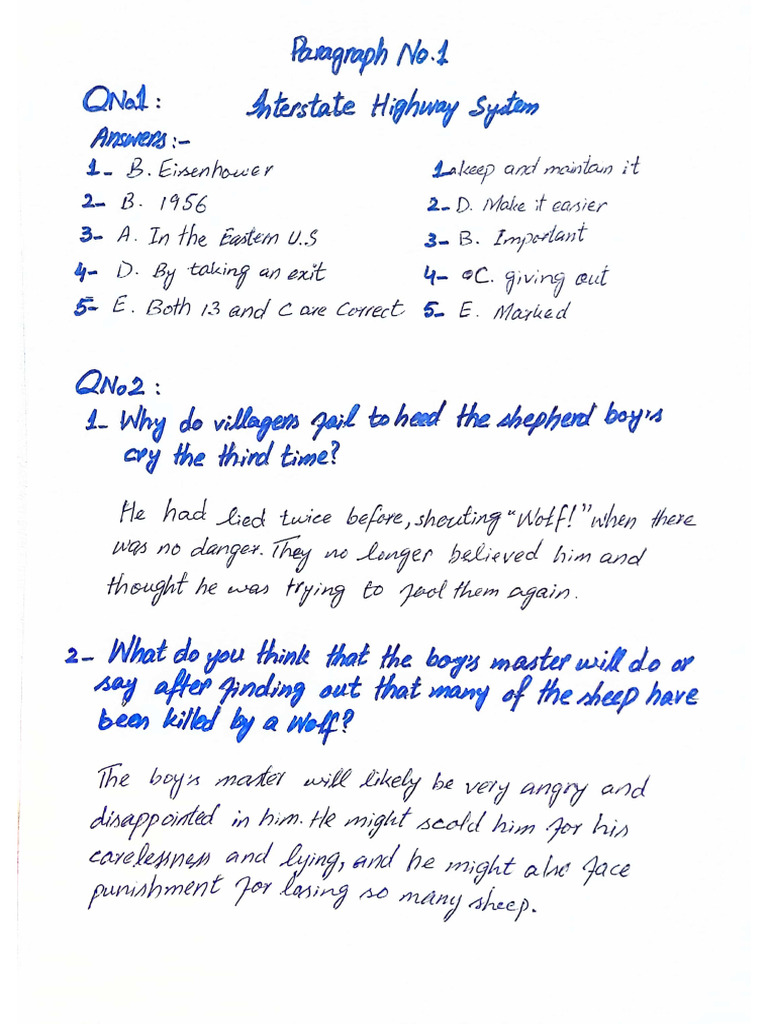 Paragraph No.1
QNo1: Interstate Highway System
Answers:-
1- B. Eisenhower
2- B. 1956
3- A. In the Eastern U.S
4- D. By taking an exit
5- E. Both 13 and C are Correct
1- keep and maintain it
2- D. Make it easier
3- B. Important
4- C. giving out
5- E. Marked
QNo2:
1- Why do villagers fail to heed the shepherd boy's
cry the third time?
He had lied twice before, shouting "Wolf!" when there
was no danger. They no longer believed him and
thought he was trying to fool them again.
2- What do you think that the boy's master will do or
say after finding out that many of the sheep have
been killed by a wolf?
The boy's master will likely be very angry and
disappointed in him. He might scold him for his
carelessness and lying, and he might also face
punishment for losing so many sheep.